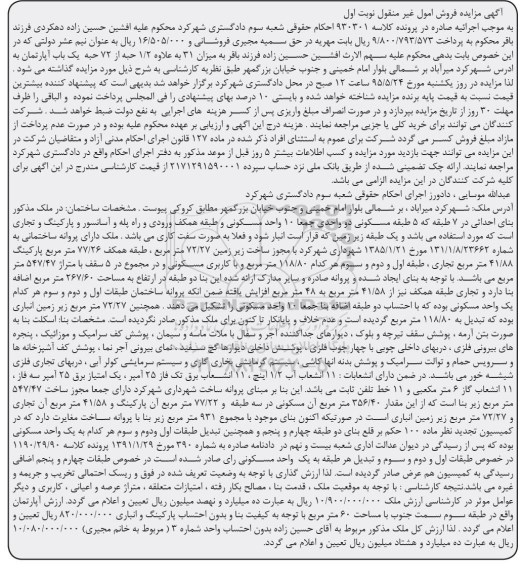 آگهی مزایده فروش اموال غیر منقول نوبت اول
به موجب اجرائیه صادره در پرونده کلاسه ۹۳۰۳۰۱ احکام حقوقی شعبه سوم دادگستری شهرکرد محکوم علیه افشین حسین زاده دهکردی فرزند
باقر محکوم به پرداخت ۹/۸۰۰/۷۹۳/۵۷۳ ریال بابت مهریه در حق سمیه مجیری فروشانی و ۱۶/۵۰۵/۰۰۰ ریال به عنوان نیم عشر دولتی که در
این خصوص بابت بدهی محکوم علیه سهم الارث افشین حسین زاده فرزند باقر به میزان ۳۱ به علاوه ۱/۲ حبه از ۷۲ حبه یک باب آپارتمان به
آدرس شهرکرد میرآباد بر شمالی بلوار امام خمینی و جنوب خیابان بزرگمهر طبق نظریه کارشناسی به شرح ذیل مورد مزایده گذاشته می شود .
لذا مزایده در روز یکشنبه مورخ ۹۵/۵/۲۴ ساعت ۱۲ صبح در محل دادگستری شهرکرد برگزار خواهد شد بدیهی است که پیشنهاد کننده بیشترین
قیمت نسبت به قیمت پایه برنده مزایده شناخته خواهد شد و بایستی ۱۰ درصد بهای پیشنهادی را فی المجلس پرداخت نموده و الباقی را ظرف
مهلت ۳۰ روز از تاریخ مزایده بپردازد و در صورت انصراف مبلغ واریزی پس از کسر هزینه های اجرایی به نفع دولت ضبط خواهد شد . شرکت
کنندگان می توانند برای خرید کلی یا جزیی مراجعه نمایند . هزینه درج این آگهی و ارزیابی بر عهده محکوم علیه بوده و در صورت عدم پرداخت از
مازاد مبلغ فروش کسر می گردد شرکت برای عموم به استثنای افراد ذکر شده در ماده ۱۲۷ قانون اجرای احکام مدنی آزاد و متقاضیان شرکت در
این مزایده می توانند جهت بازدید مورد مزایده و کسب اطلاعات بیشتر ۵ روز قبل از موعد مذکور به دفتر اجرای احکام واقع در دادگستری شهرکرد
مراجعه نمایند. ارائه چک تضمینی شده از طریق بانک ملی نزد حساب سپرده ۲۱۷۱۲۹۱۵۹۰۰۰۱ از قیمت کارشناسی مندرج در این آگهی برای
کلیه شرکت کنندگان در این مزایده الزامی می باشد.
عبدالله موسایی ، دادورز اجرای احکام حقوقی شعبه سوم دادگستری شهرکرد
آدرس ملک: شهرکرد میرآباد ، بر شمالی بلوار امام خمینی و جنوب خیابان بزرگمهر مطابق کروکی پیوست . مشخصات ساختمان: در ملک مذکور
بنای احداثی در ۷ طبقه که ۵ طبقه مسکونی دو واحدی جمعا ۱۰ واحد مسکونی و طبقه همکف ورودی و راه پله و آسانسور و پارکینگ و تجاری
است که مورد استفاده می باشد و یک طبقه زیر زمین که قرار است انبار شود و فعلا به صورت سفت کاری می باشد . ملک دارای پروانه ساختمانی به
شماره ۱۳۱/۱/۸/۲۳۶۶۲ مورخ ۱۳۸۵/۱/۲۱ شهرداری شهرکرد با مجوز ساخت زیر زمین ۷۲/۲۷ متر مربع ، طبقه همکف ۷۷/۲۶ متر مربع پارکینگ
۴۱/۸۸ متر مربع تجاری ، طبقه اول و دوم و سوم هر کدام ۱۱۸/۸۰ متر مربع و با کاربری مسکونی و در مجموع در ۵ سقف با متراژ ۵۴۷/۴۷ متر
مربع می باشد. با توجه به بنای ایجاد شده و پروانه صادره و سایر مدارک ارائه شده این بنا دو طبقه در ارتفاع به مساحت ۲۶۷/۶۰ متر مربع اضافه
بنا دارد و تجاری طبقه همکف نیز از ۴۱/۵۸ متر مربع به ۴۸ متر مربع افزایش یافته ضمن آنکه پروانه ساختمان طبقات اول و دوم و سوم هر کدام
یک واحد مسکونی بوده که با احتساب دو طبقه اضافه بنا جمعا ۱۰ واحد مسکونی را تشکیل می دهند . همچنین ۷۲/۲۷ متر مربع زیر زمین انباری
بوده که تبدیل به ۱۱۸/۸۰ متر مربع گردیده است و عدم خلاف و پایانکار تا کنون برای ملک مذکور صادر نگردیده است. مشخصات بنا: اسکلت بنا به
صورت بتن آرمه ، پوشش سقف تیرچه و بلوک ، دیوارهای جداکننده آجر و سفال با ملات ماسه و سیمان ، پوشش کف سرامیک و موزائیک ، پنجره
های بیرونی فلزی ، دربهای داخلی چوبی با چهارچوب فلزی ، پوشش داخلی دیوارها گچ سفید ، نمای بیرونی آجر نما ، پوشش کف آشپزخانه ها
و سرویس حمام و توالت سرامیک و پوشش بدنه آنها کاشی ، سیستم گرمایشی بخاری گازی و سیستم سرمایشی کولر آبی ، دربهای تجاری فلزی
شیشه خور می باشد. در ضمن دارای انشعابات : ۱۱ انشعاب آب ۱/۲ اینچ ، ۱۱ انشعاب برق تک فاز ۲۵ آمپر ، یک امتیاز برق ۲۵ آمپر سه فاز ،
۱۱ انشعاب گاز ۶ متر مکعبی و ۱۱ خط تلفن ثابت می باشد. این بنا بر مبنای پروانه ساخت شهرداری شهرکرد دارای جمعا مجوز ساخت ۵۴۷/۴۷
متر مربع زیر بنا است که از این مقدار ۳۵۶/۴۰ متر مربع آن مسکونی در سه طبقه و ۷۷/۲۲ متر مربع آن پارکینگ و ۴۱/۵۸ متر مربع آن تجاری
و ۷۲/۲۷ متر مربع زیر زمین انباری است در صورتیکه اکنون بنای موجود با مجموع ۹۳۱ متر مربع زیر بنا با پروانه ساخت مغایرت دارد که در
کمیسیون تجدید نظر ماده ۱۰۰ حکم بر قلع بنای دو طبقه چهارم و پنجم و همچنین تبدیل طبقات اول ودوم و سوم هر کدام به یک واحد مسکونی
بوده که پس از رسیدگی در دیوان عدالت اداری شعبه بیست و نهم در دادنامه صادره به شماره ۳۹۰ مورخ ۱۳۹۱/۱/۲۹ پرونده کلاسه ۱۱۹۰/۲۹/۹۰
در خصوص طبقات اول و دوم و سوم و تبدیل هر طبقه به یک واحد مسکونی رای صادر شده است در خصوص طبقات چهارم و پنجم اضافی
رسیدگی به کمیسیون هم عرض صادر گردیده است. لذا ارزش گذاری با توجه به وضعیت تعریف شده در فوق و ریسک احتمالی تخریب و جریمه و
غیره می باشد.نتیجه کارشناسی : با توجه به موقعیت ملک ، قدمت بنا ، مصالح بکار رفته ، امتیازات متعلقه ، متراژ عرصه و اعیانی ، کاربری و دیگر
عوامل موثر در کارشناسی ارزش ملک ۱۰/۹۰۰/۰۰۰/۰۰۰ ریال به عبارت ده میلیارد و نهصد میلیون ریال تعیین و اعلام می گردد. ارزش آپارتمان
واقع در طبقه سوم سمت جنوب با مساحت ۶۰ متر مربع با توجه به کیفیت بنا و بدون احتساب پارکینگ و انباری ۸۲۰/۰۰۰/۰۰۰ ریال تعیین و
اعلام می گردد . لذا ارزش کل ملک مذکور مربوط به آقای حسین زاده بدون احتساب واحد شماره ۳ ( مربوط به خانم مجیری) ۱۰/۰۸۰/۰۰۰/۰۰۰
ریال به عبارت ده میلیارد و هشتاد میلیون ریال تعیین و اعلام می گردد.